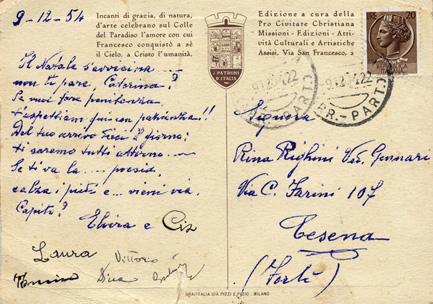 9-12-54
Incanti di grazia, di natura,
d'arte celebrano sul Colle
del Paradiso l'amore con cui
Francesco conquistò a sè
il Cielo, a Cristo l'umanità.
I PATRONI
D'ITALIA
Edizione a cura della
Pro Civitate Christiana
Missioni - Edizioni - Atti-
vità Culturali e Artistiche
Assisi, Via San Francesco, 2
20
9.12.54.22
PARTZE
9.12.54.22
PARTZE
Il Natale s'avvicina ....
non ti pare, Caterina?
Se vuoi fare penitenza
t'aspettiam qui con pazienza!!
Del tuo arrivo dicci il giorno:
ti saremo tutti attorno.
Se ti va la .... poesia,
calza i pattini e ... vieni via.
Capito?
Elvira e Ciz
Laura
Vittorio
Dina
Signora
Rina Righini Gennari
Via C. Farini 107
Cesena
(Forlì)
PIZZI E PIZIO - MILANO